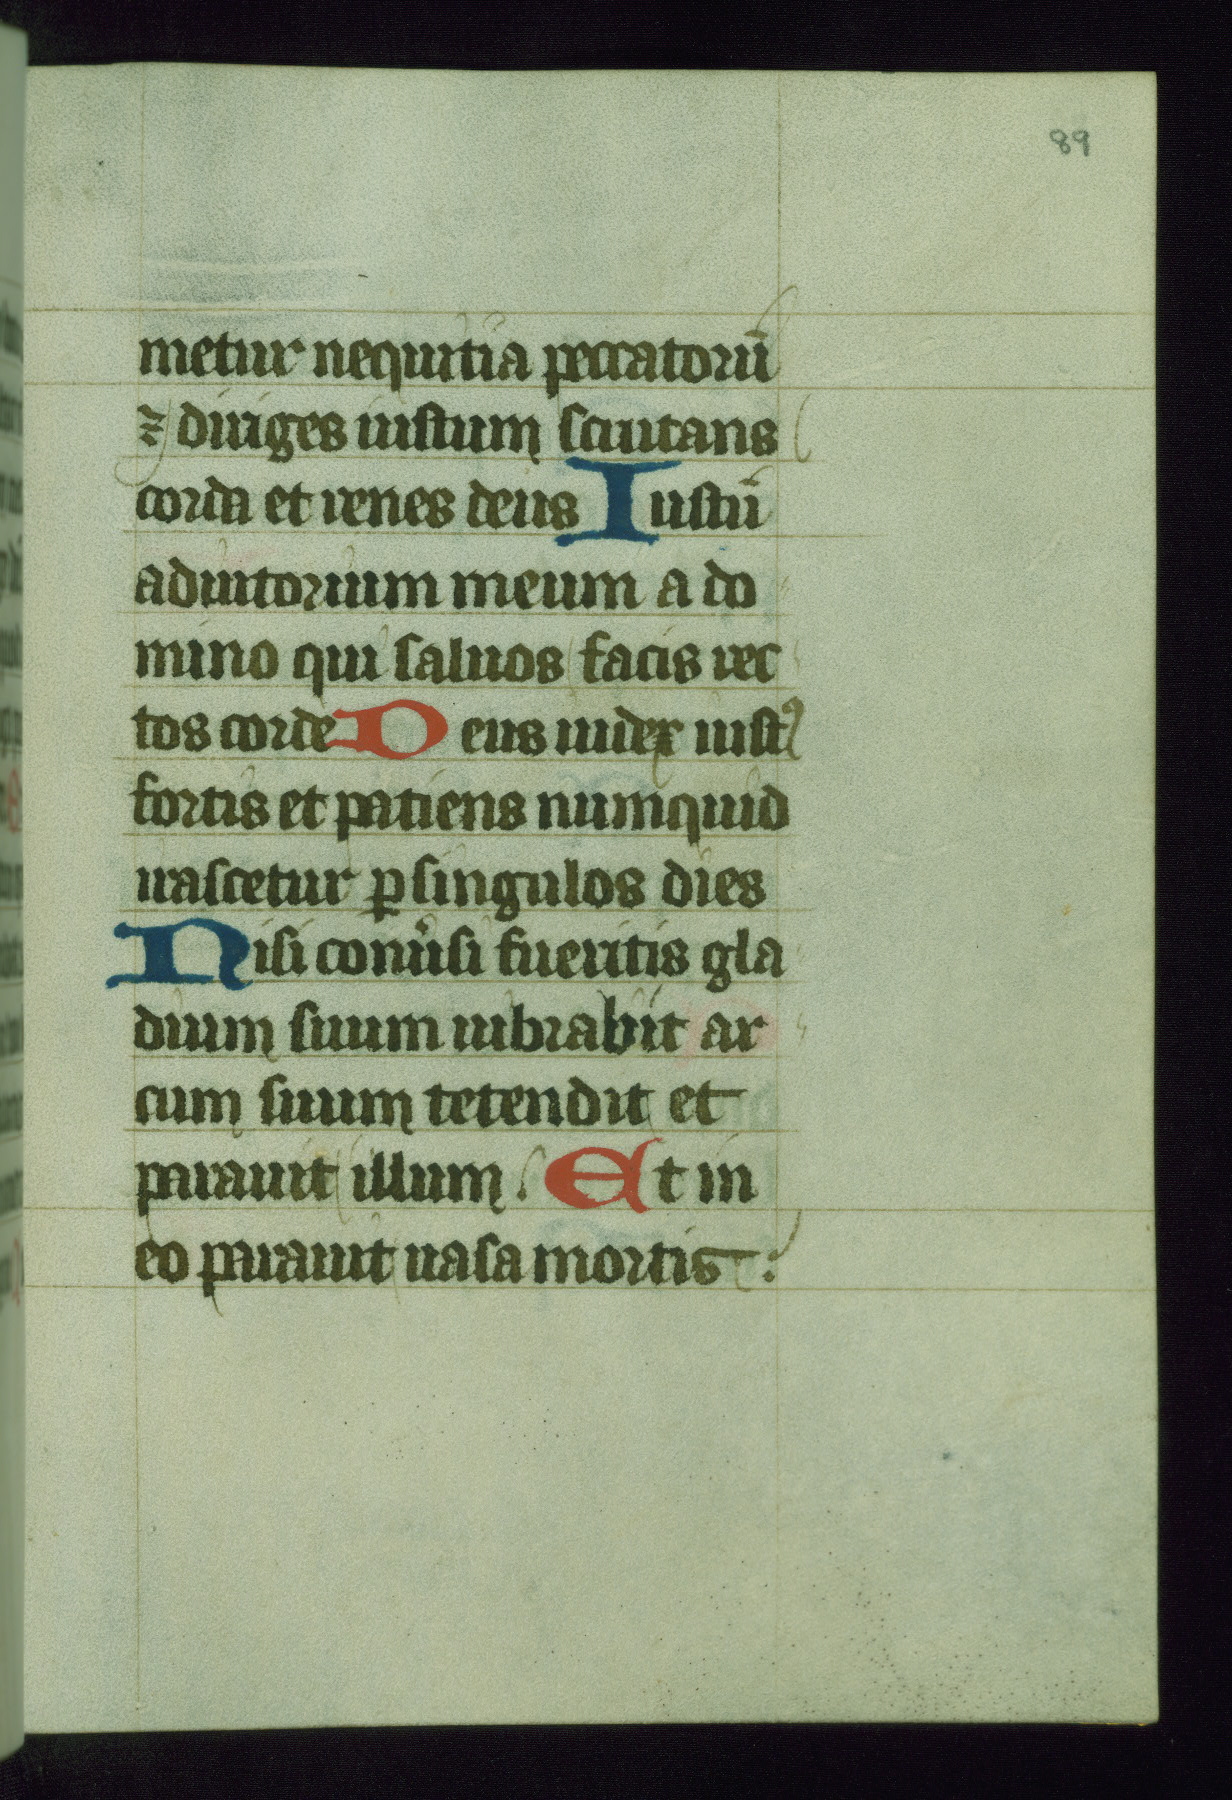 89
metur nequitia peccatorū
⁊ diriges iustum scrutans
corda et renes deus Iustū
adiutorium meum a do
mino qui saluos facis rec
tos corde Deus iudex iustꝰ
fortis et patiens numquid
irascetur ꝑ singulos dies
Nisi conūsi fueritis gla
dium suum uibrabit ar
cum suum tetendit et
parauit illum . Et in
eo parauit uasa mortis :